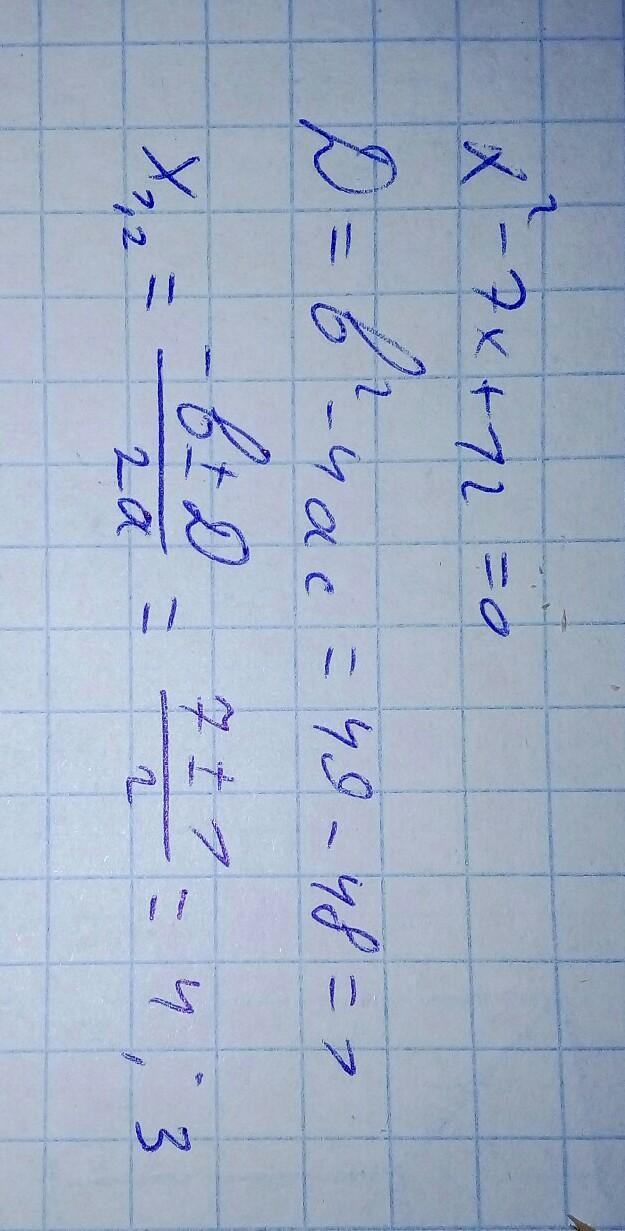 x² - 7x + 12 = 0
D = b² - 4ac = 49 - 48 = 1
x₁,₂ = (-b ± D)/(2a) = (7 ± 1)/2 = 4; 3